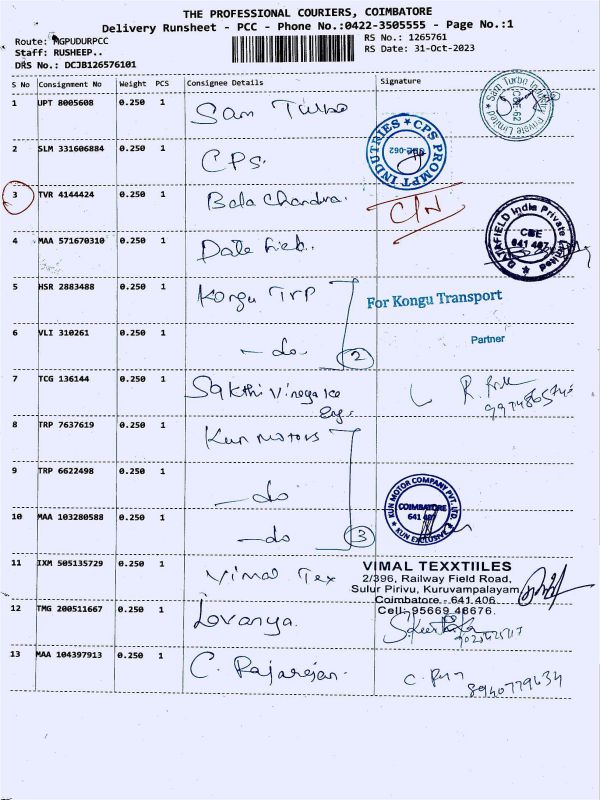 THE PROFESSIONAL COURIERS, COIMBATORE
Delivery Runsheet - PCC - Phone No.:0422-3505555 - Page No.:1
Route: MGPUDURPCC
Staff: RUSHEEP..
DRS No.: DCJB126576101
RS No.: 1265761
RS Date: 31-Oct-2023
S No Consignment No Weight PCS Consignee Details Signature
1 UPT 8005608 0.250 1 Sam Turbo
Sam Turbo Industry Private Limited
CBE-62
2 SLM 331606884 0.250 1 CPS.
CPS PROMPT INDUTRIES
CBE-062
3 TVR 4144424 0.250 1 Bala Chandra. C/N
4 MAA 571670310 0.250 1
DATAFIELD India Private Limited
CBE
641 407
5 HSR 2883488 0.250 1 Kongu TRP
For Kongu Transport
6 VLI 310261 0.250 1 -do- 2
Partner
7 TCG 136144 0.250 1 Sakthi Vinayaka
Eng.
8 TRP 7637619 0.250 1 Kun Motors
9 TRP 6622498 0.250 1 -do
KUN MOTOR COMPANY PVT. LTD.
COIMBATORE
641 407
KUN EXCLUSIVE
10 MAA 103280588 0.250 1 -do 3
11 IXM 505135729 0.250 1 Vimal Tex
VIMAL TEXXTIILES
2/396, Railway Field Road,
Sulur Pirivu, Kuruvampalayam
Coimbatore - 641 406.
Cell: 95669 48676.
12 TMG 200511667 0.250 1 Lovanya.
13 MAA 104397913 0.250 1 C. Rajarajan.
8940779634